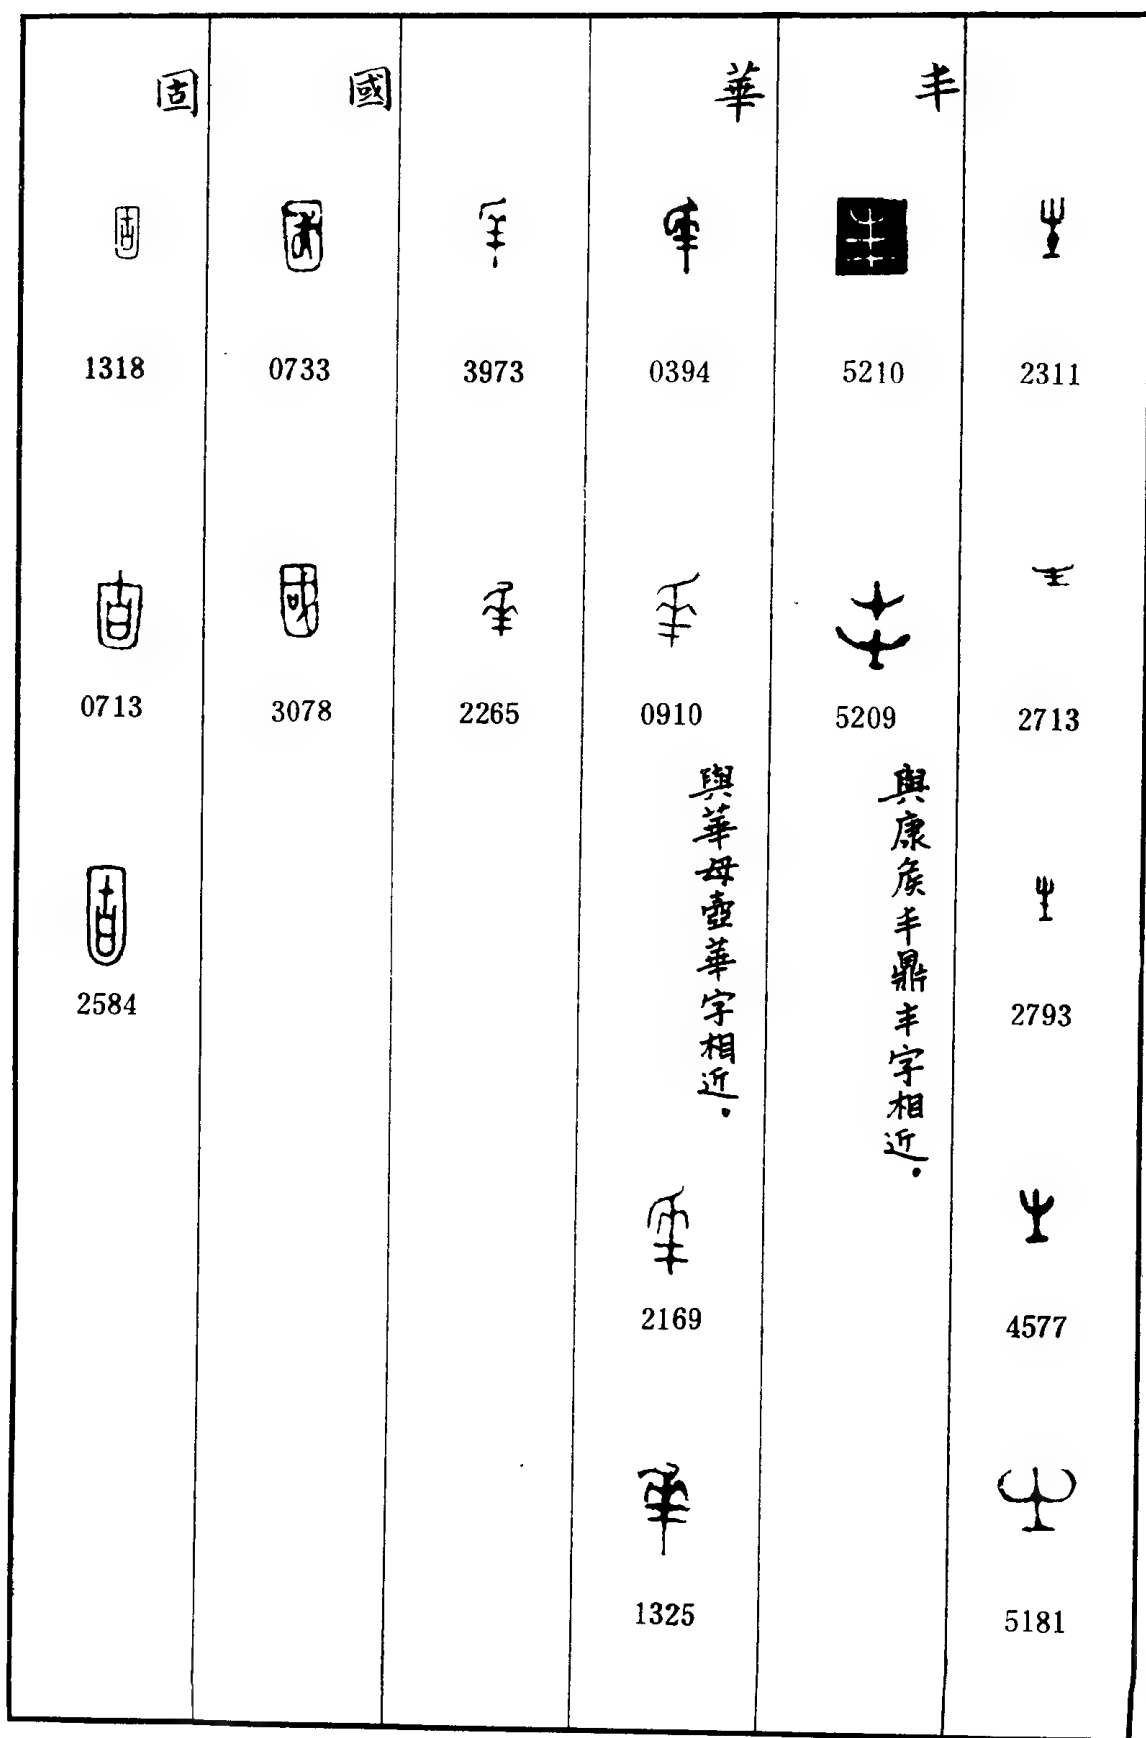 2311
2713
2793
4577
5181
丰
5210
5209
與康侯丰鼎丰字相近。
華
0394
0910
與華母壺華字相近。
2169
1325
3973
2265
國
0733
3078
固
1318
0713
2584